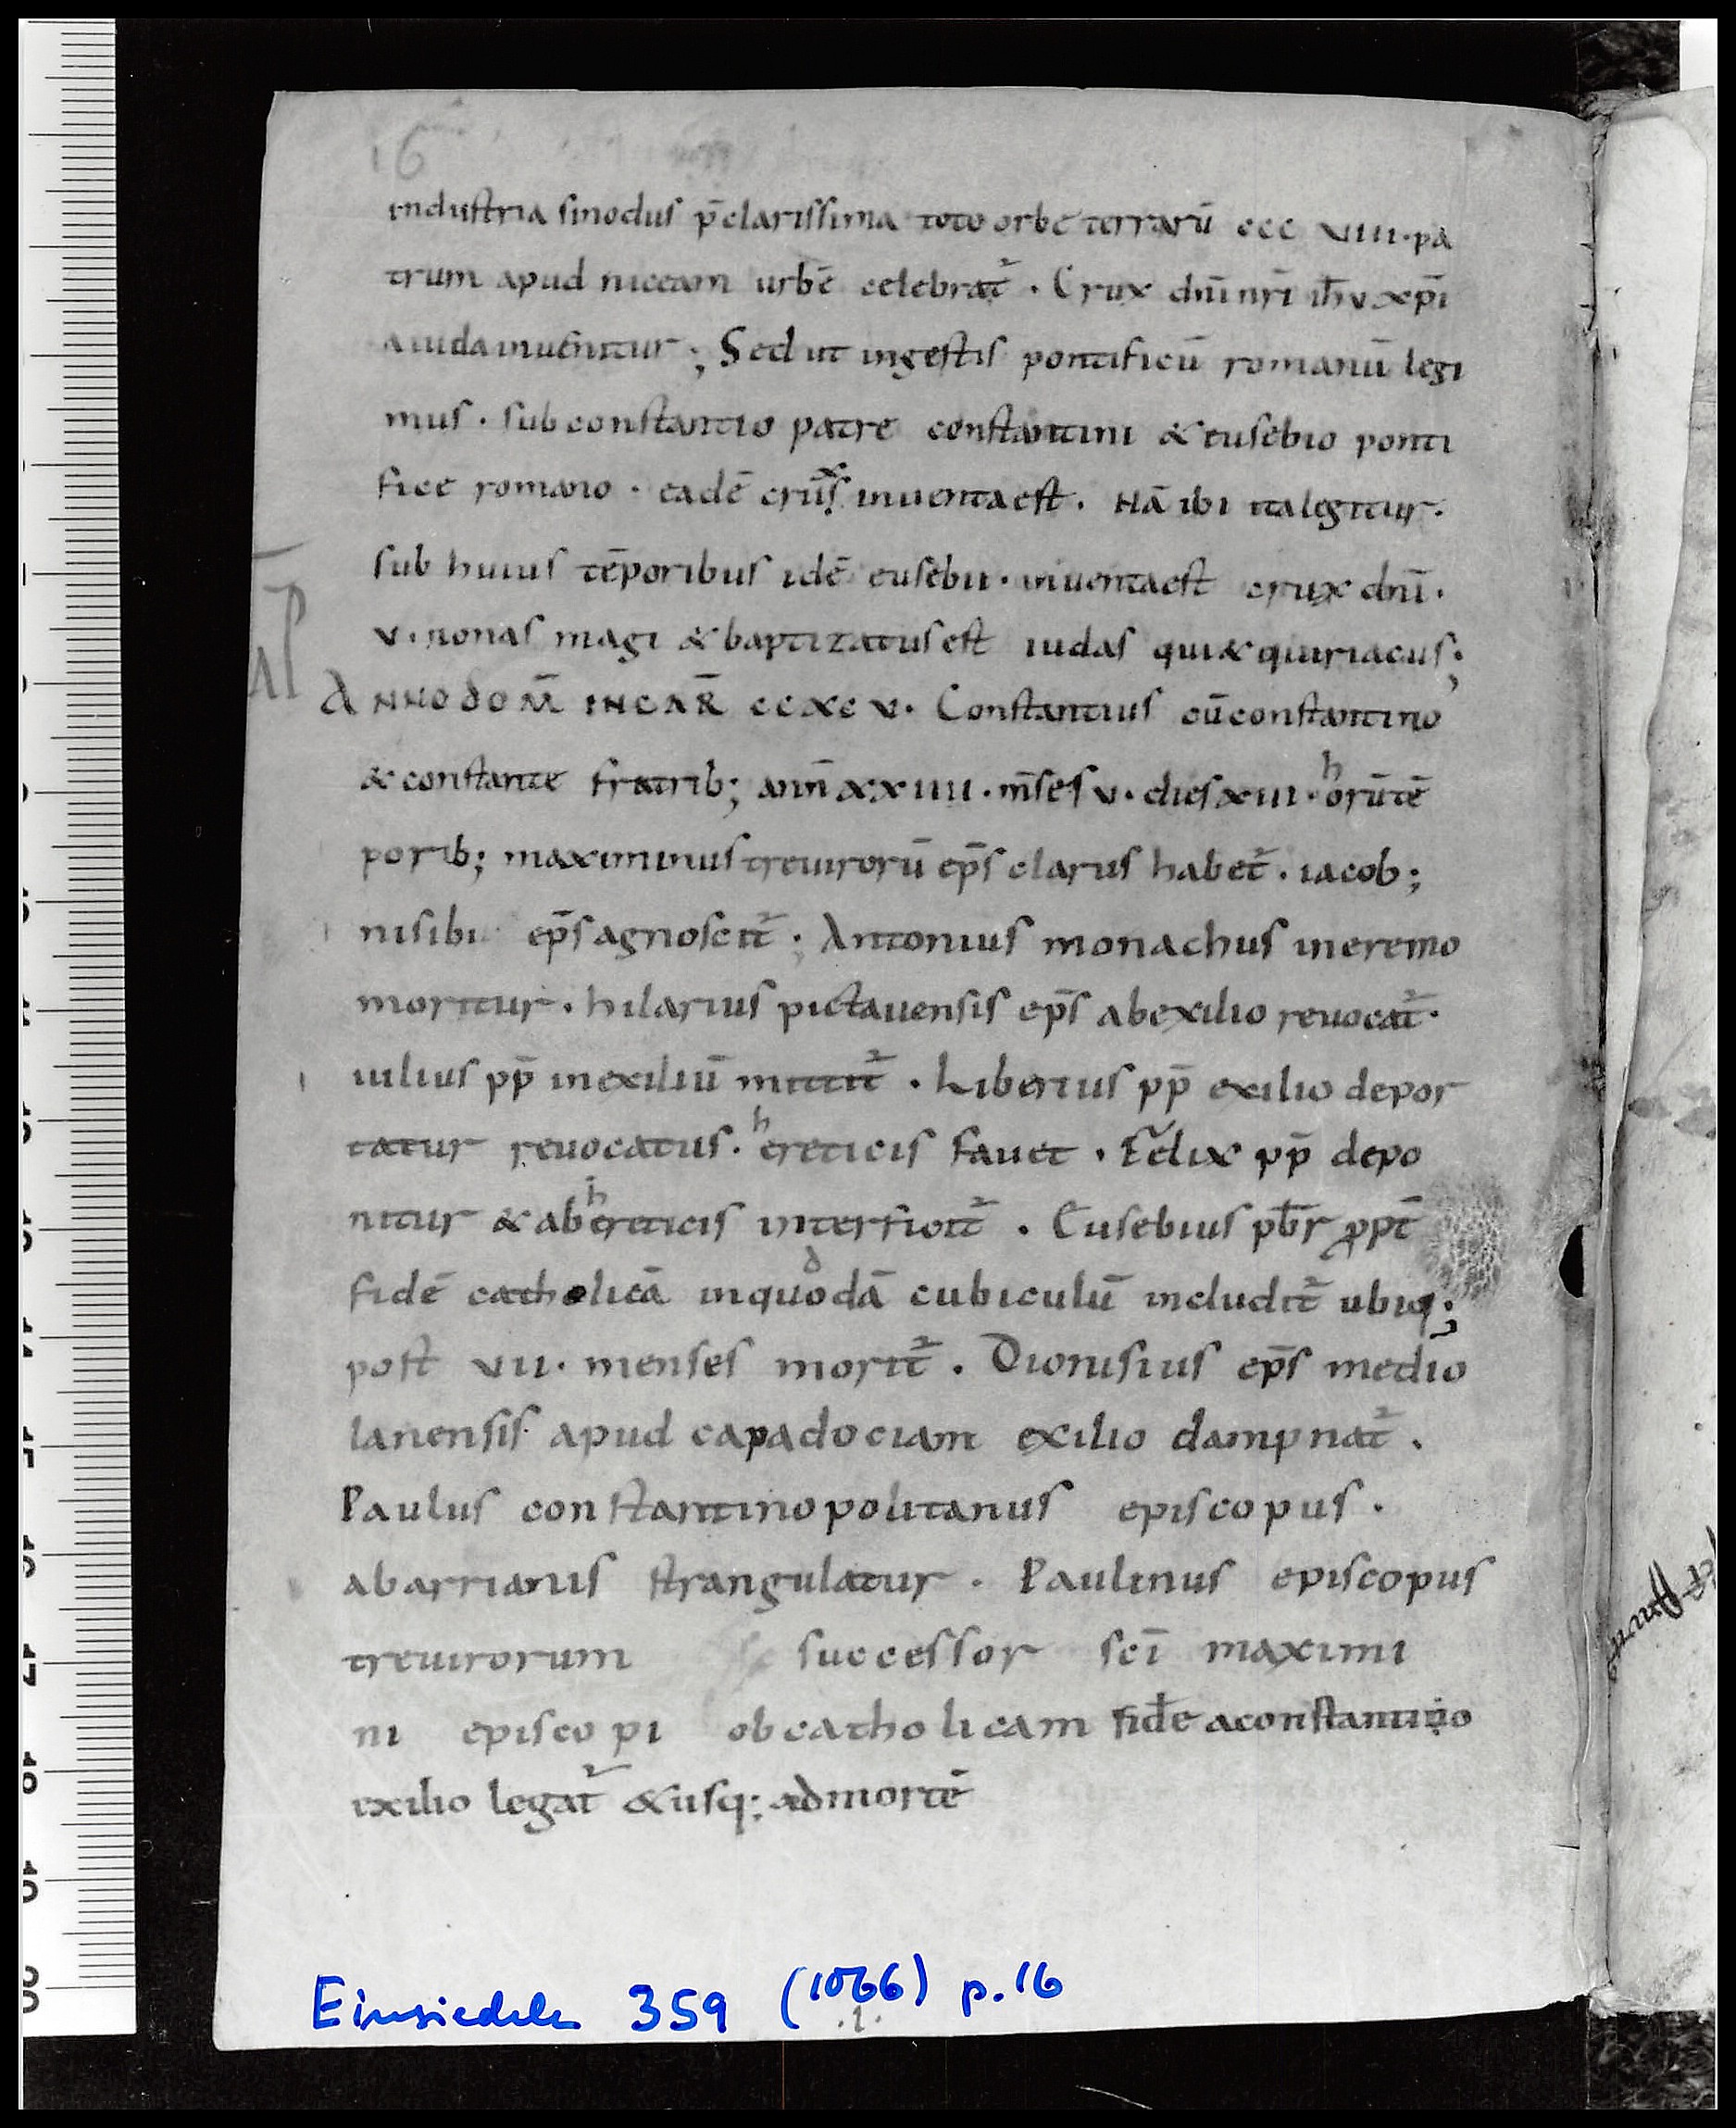 16
industria sinodus p̄clarissima toto orbe terrarū ccc xviii · pa
trum apud niceam urbē celebrat᷑ . Crux dn̄i nr̄i ih̄u xp̄i
a iuda inuenitur ; Sed ut in gestis pontificū romanū legi
mus . sub constantio patre constantini & eusebio ponti
fice romano . eadē crux inuenta est . Nā ibi ita legitur .
sub huius tēporibus idē eusebii . inuenta est crux dn̄i .
v . nonas magi & baptizatus est iudas qui & quiriacus ;
ANNO DOM̄ INCAR̄ ccxcv . Constantius cū constantino
& constante fratrib; ann̄ xxiiii . m̄ses v . dies xiii . horū tē
porib; maximinus treuirorū ep̄s clarus habet᷑ . iacob;
nisibi ep̄s agnoscit᷑ ; Antonius monachus in eremo
moritur . hilarius pictauensis ep̄s ab exilio reuocat᷑ .
iulius pp̄ in exiliū mittit᷑ . Liberius pp̄ exilio depor
tatur reuocatus . hereticis fauet . Felix pp̄ depo
nitur & ab hereticis interficit᷑ . Eusebius pb̄r ꝓpt̄
fidē catholicā in quodā cubiculū includit᷑ ubiq;
post vii . menses morit᷑ . Dionisius ep̄s medio
lanensis apud capadociam exilio dampnat᷑ .
Paulus constantinopolitanus episcopus .
ab arrianis strangulatur . Paulinus episcopus
treuirorum successor sc̄i maximi
ni episcopi ob catholicam fidē a constantino
exilio legat᷑ & usq; ad mortē
Einsiedeln 359 (1066) p. 16
.1.